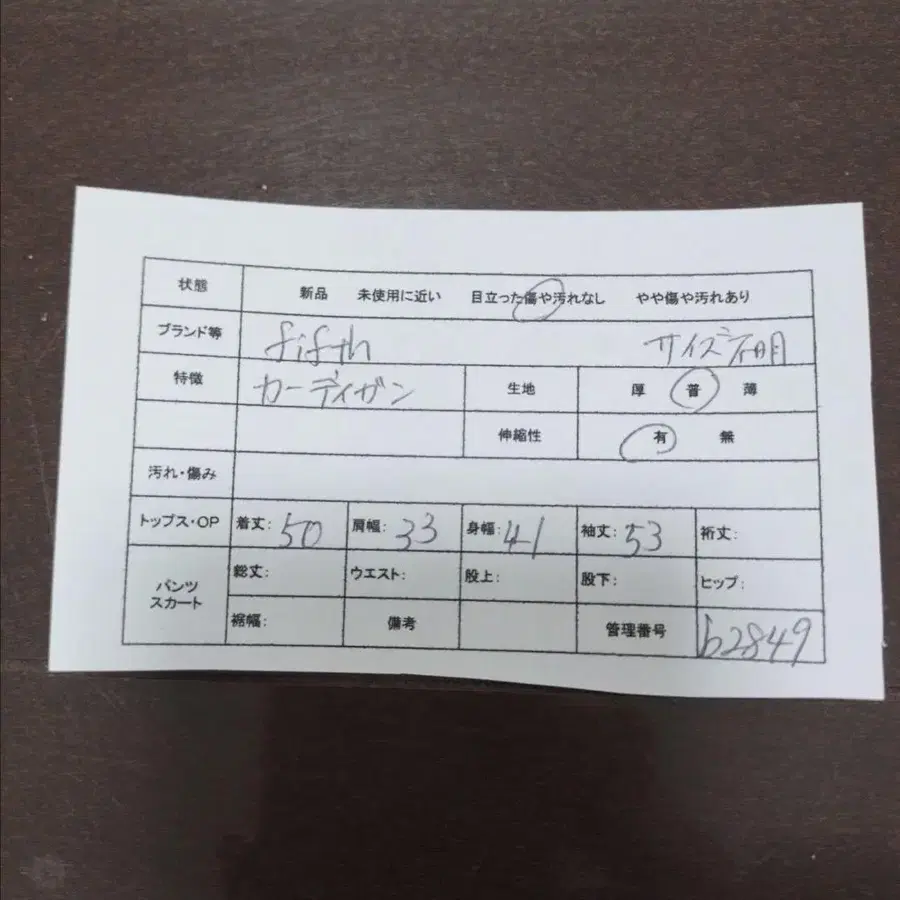 状態 新品 未使用に近い 目立った傷や汚れなし やや傷や汚れあり
ブランド等 fifth サイズ不明
特徴 カーディガン 生地 厚 普 薄
伸縮性 有 無
汚れ・傷み
トップス・OP 着丈: 50 肩幅: 33 身幅: 41 袖丈: 53 裄丈:
パンツ スカート 総丈: ウエスト: 股上: 股下: ヒップ:
裾幅: 備考 管理番号 b2849